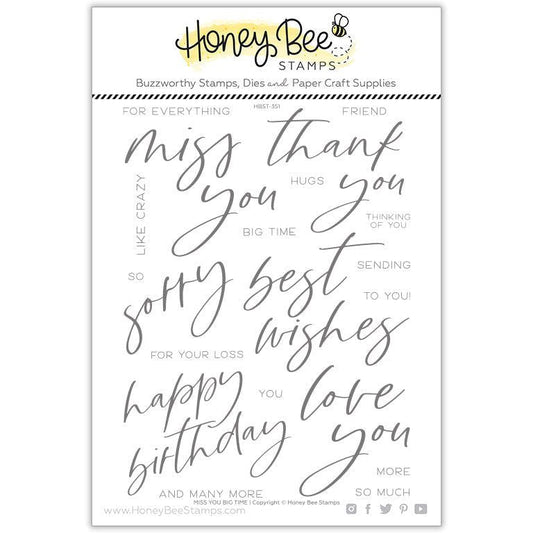 Honey Bee
STAMPS
Buzzworthy Stamps, Dies and Paper Craft Supplies
HBST-351
FOR EVERYTHING
FRIEND
miss
thank
you
HUGS
you
LIKE CRAZY
THINKING
OF YOU
BIG TIME
SO
sorry
best
SENDING
TO YOU!
wishes
FOR YOUR LOSS
happy
YOU
love
birthday
you
MORE
AND MANY MORE
SO MUCH
MISS YOU BIG TIME | Copyright © Honey Bee Stamps
www.HoneyBeeStamps.com